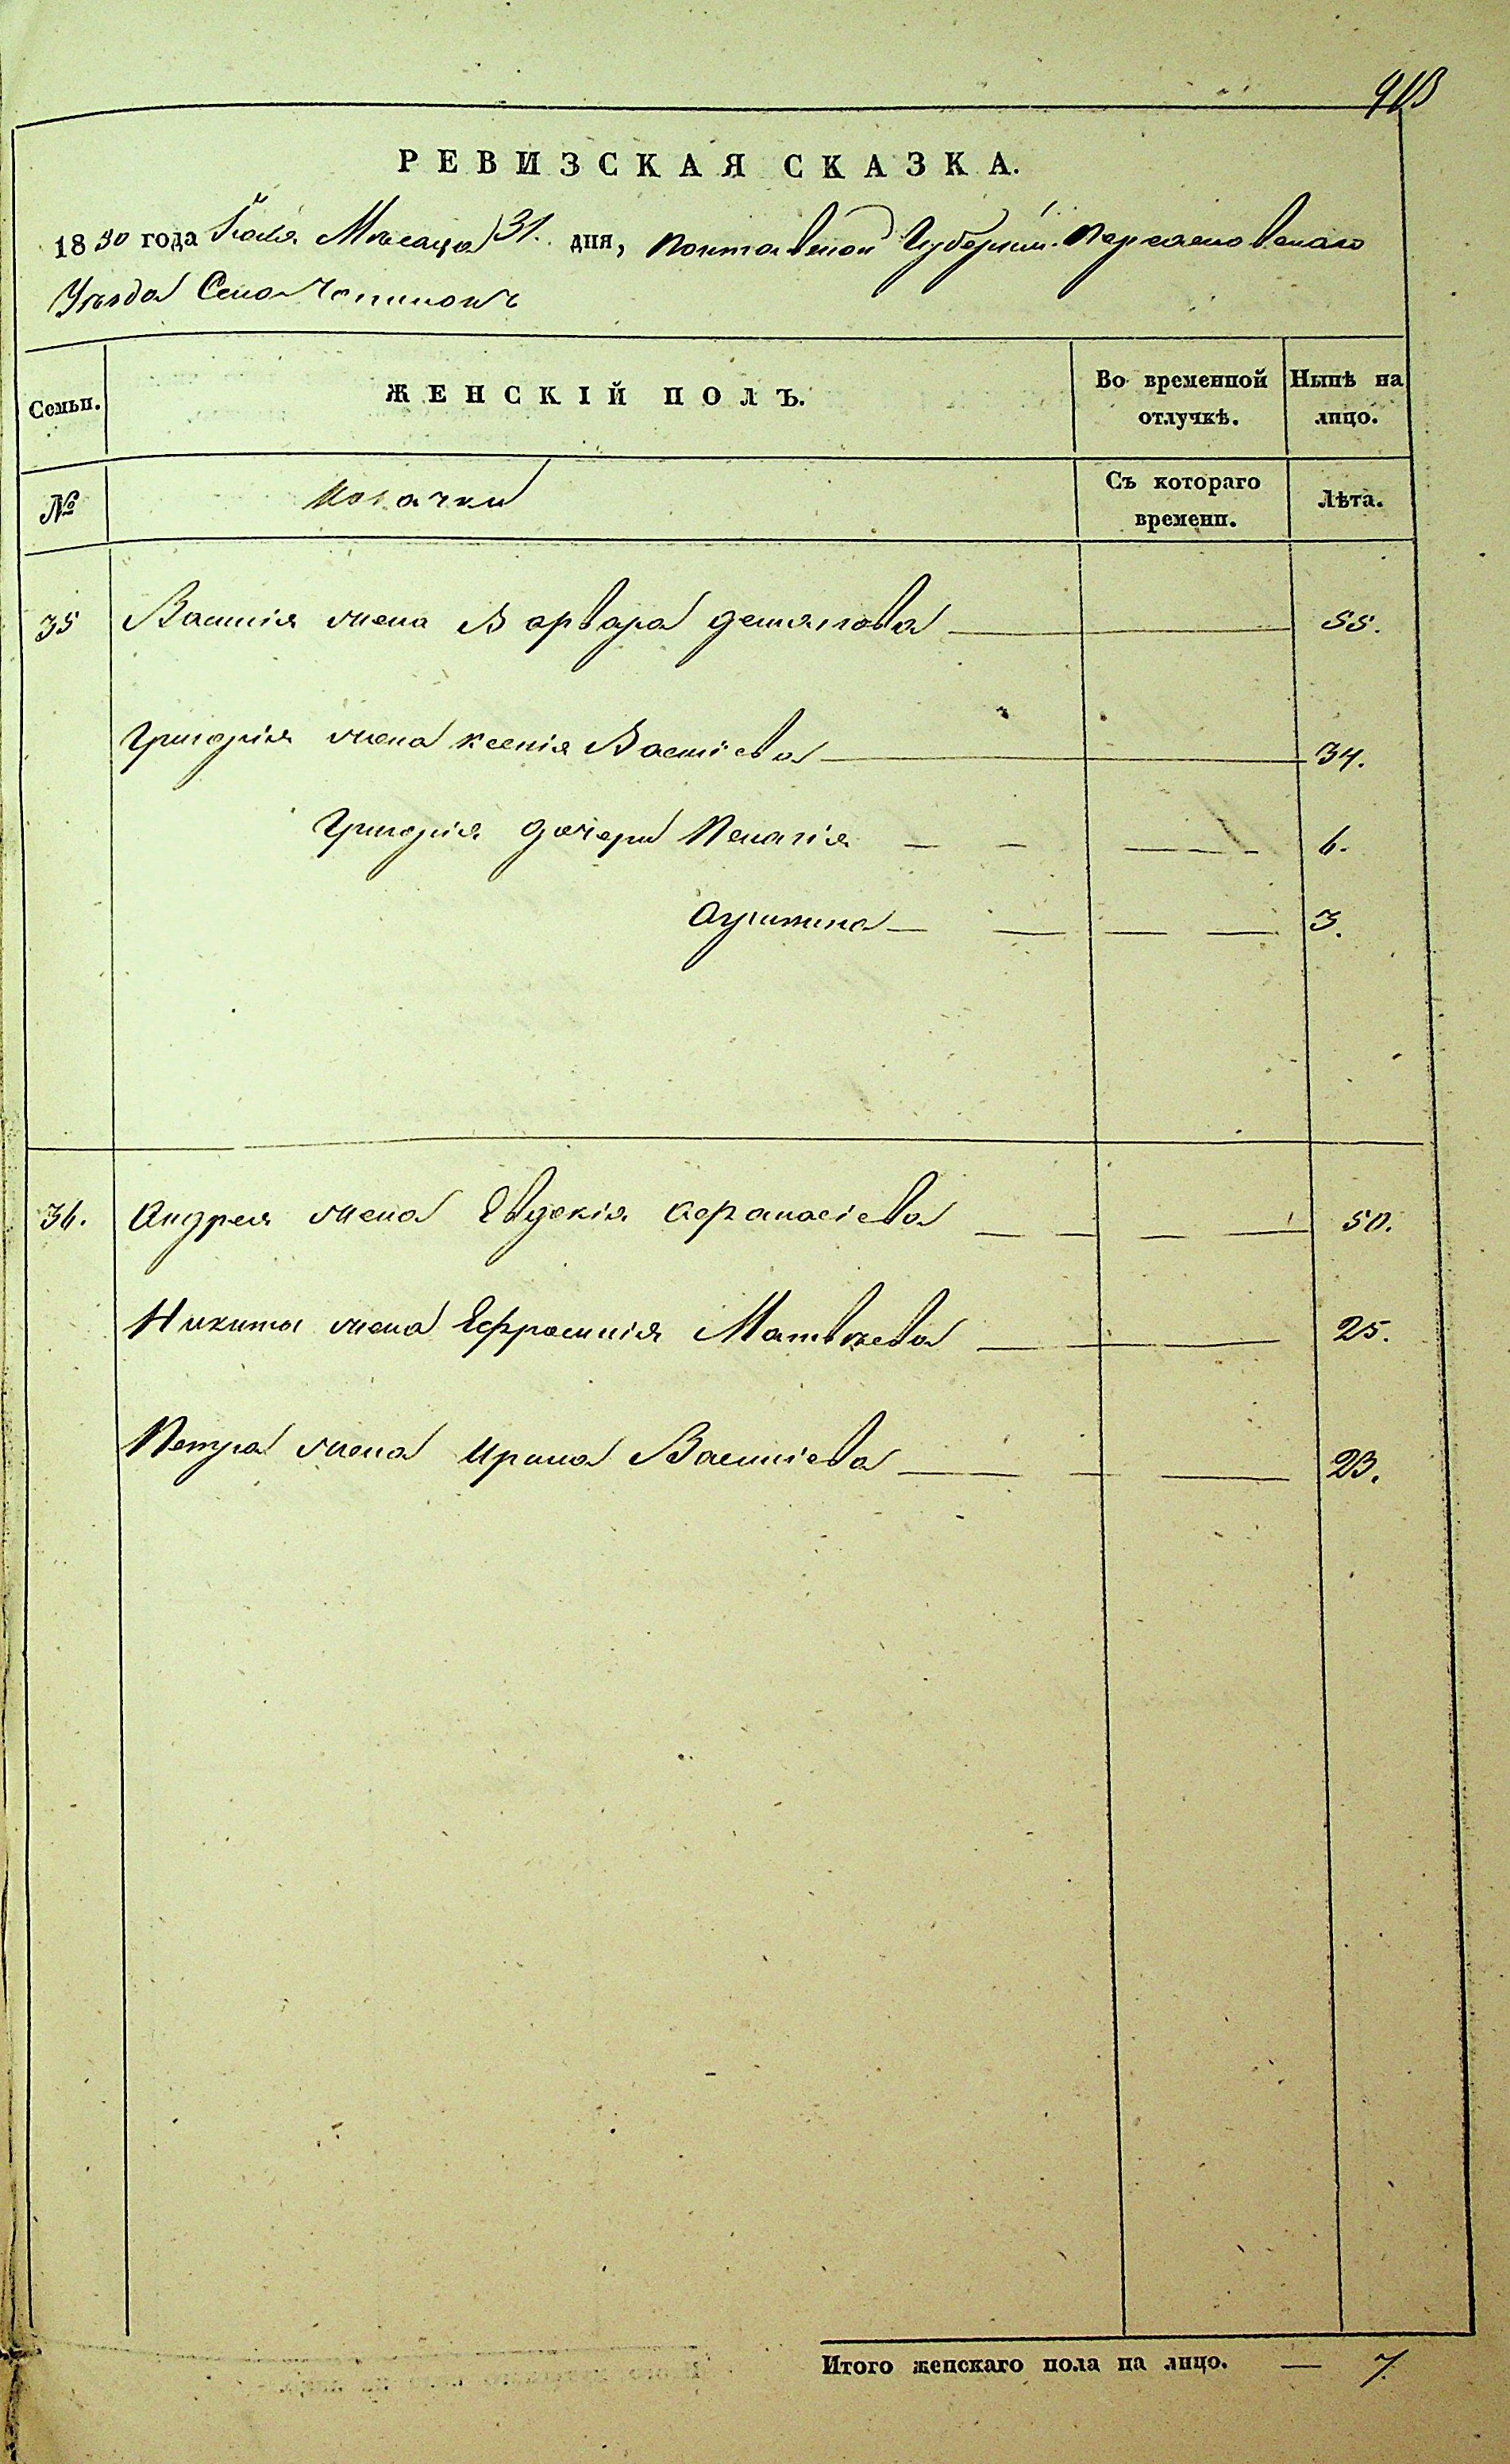 913
РЕВИЗСКАЯ СКАЗКА.
1850 года Іюля Мѣсяца 31. дня, Полтавской Губерніи Переяславскаго
Уѣзда Села
Семьи. ЖЕНСКІЙ ПОЛЪ. Во временной отлучкѣ. Нынѣ на лицо.
№ Козачки Съ котораго времени. Лѣта.
35 Василія жена Варвара Демянова 55.
Григорія жена Ксенія Васильева 34.
Григорія дочери Пелагія 6.
3.
36. Андрея жена Евдокія Афанасіева 50.
Никиты жена Ефросинія Матвѣева 25.
Петра жена Ирина Василіева 23.
Итого женскаго пола на лицо. — 7.